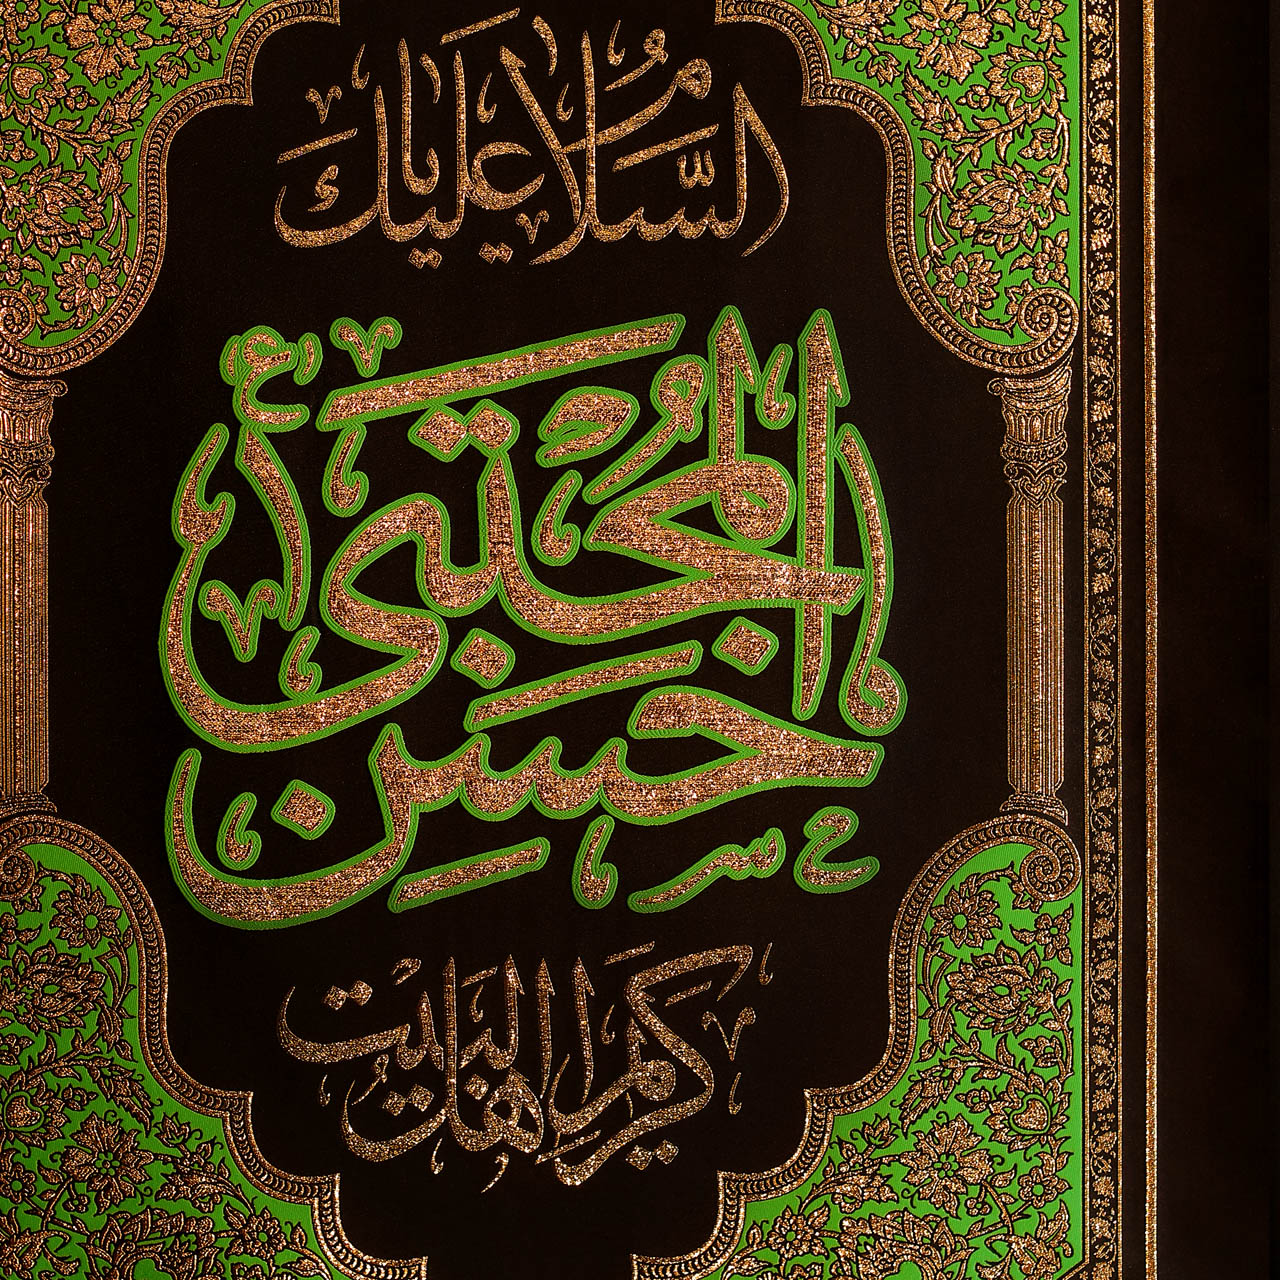 السلام علیک یا
حسن
المجتبی
کریم اهل البیت